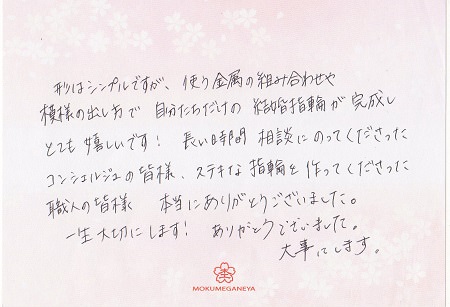 形はシンプルですが、使う金属の組み合わせや
模様の出し方で 自分たちだけの 結婚指輪が完成し
とても嬉しいです！ 長い時間 相談にのってくださった
コンシェルジュの皆様、ステキな指輪を作ってくださった
職人の皆様 本当にありがとうございました。
一生大切にします！ ありがとうございました。
大事にします。
MOKUMEGANEYA